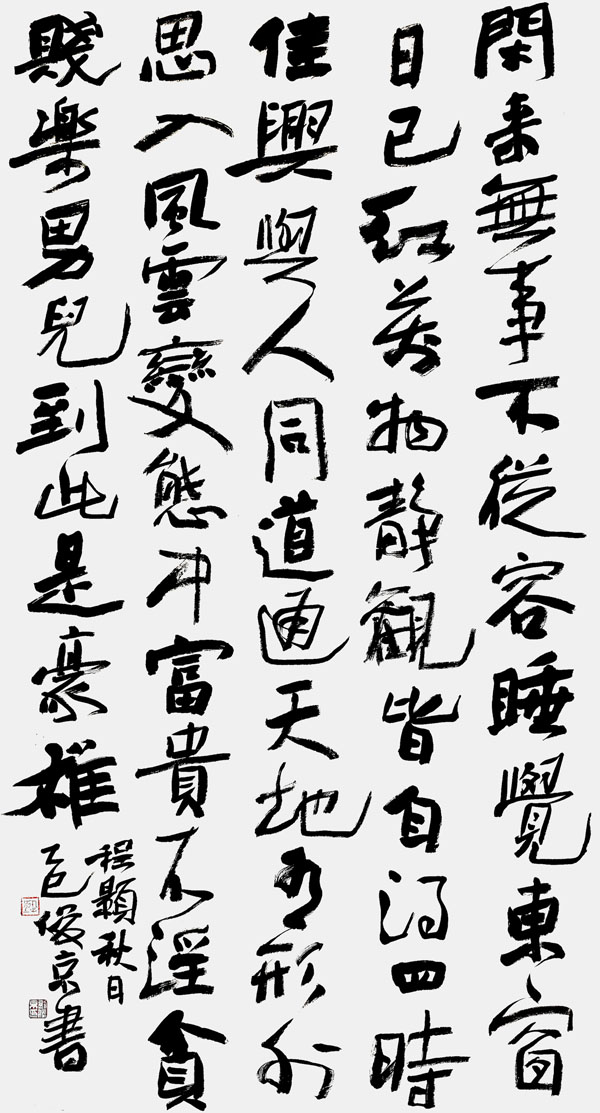 閑来無事不從容睡覺東窗
日已紅萬物静觀皆自得四時
佳興與人同道通天地有形外
思入風雲變態中富貴不淫貧
賤楽男兒到此是豪雄
程顥秋日
乙巳俊京書